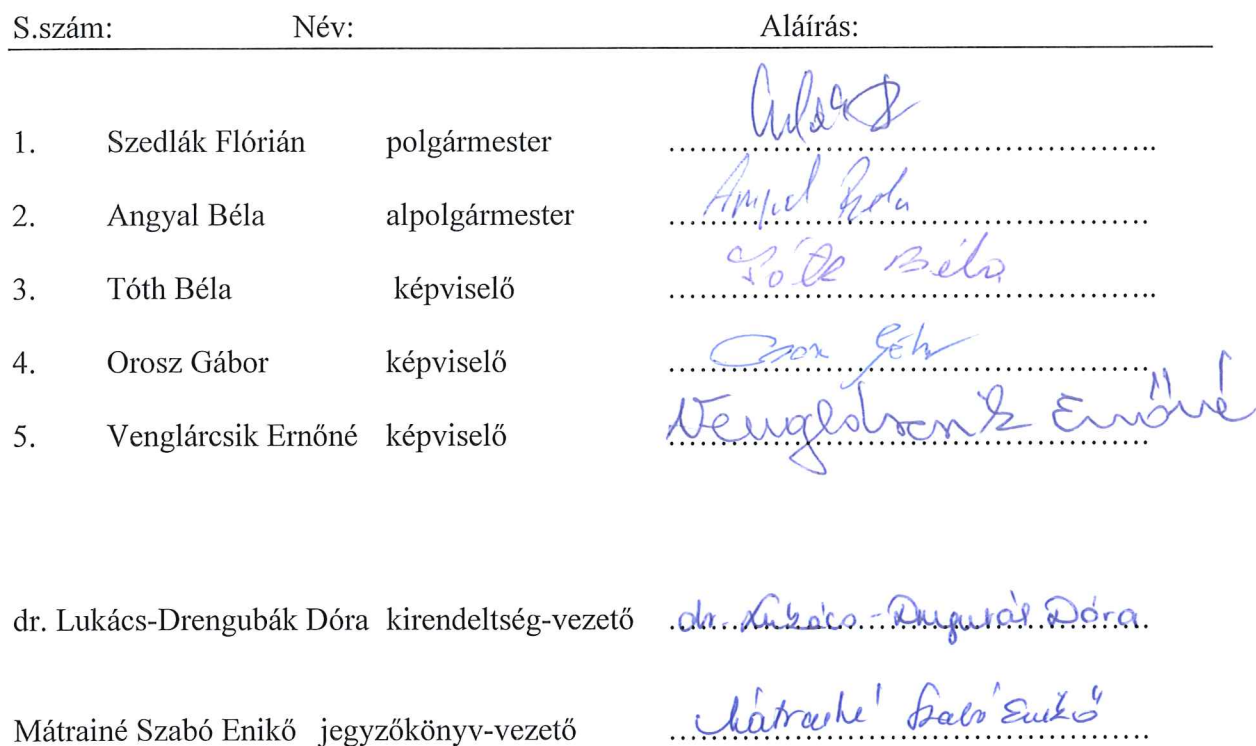 S.szám: Név: Aláírás:
1. Szedlák Flórián polgármester ................................................
2. Angyal Béla alpolgármester Angyal Béla
3. Tóth Béla képviselő Tóth Béla
4. Orosz Gábor képviselő
5. Venglárcsik Ernőné képviselő Venglárcsik Ernőné
dr. Lukács-Drengubák Dóra kirendeltség-vezető dr. Lukács-Drengubák Dóra
Mátrainé Szabó Enikő jegyzőkönyv-vezető Mátrainé Szabó Enikő